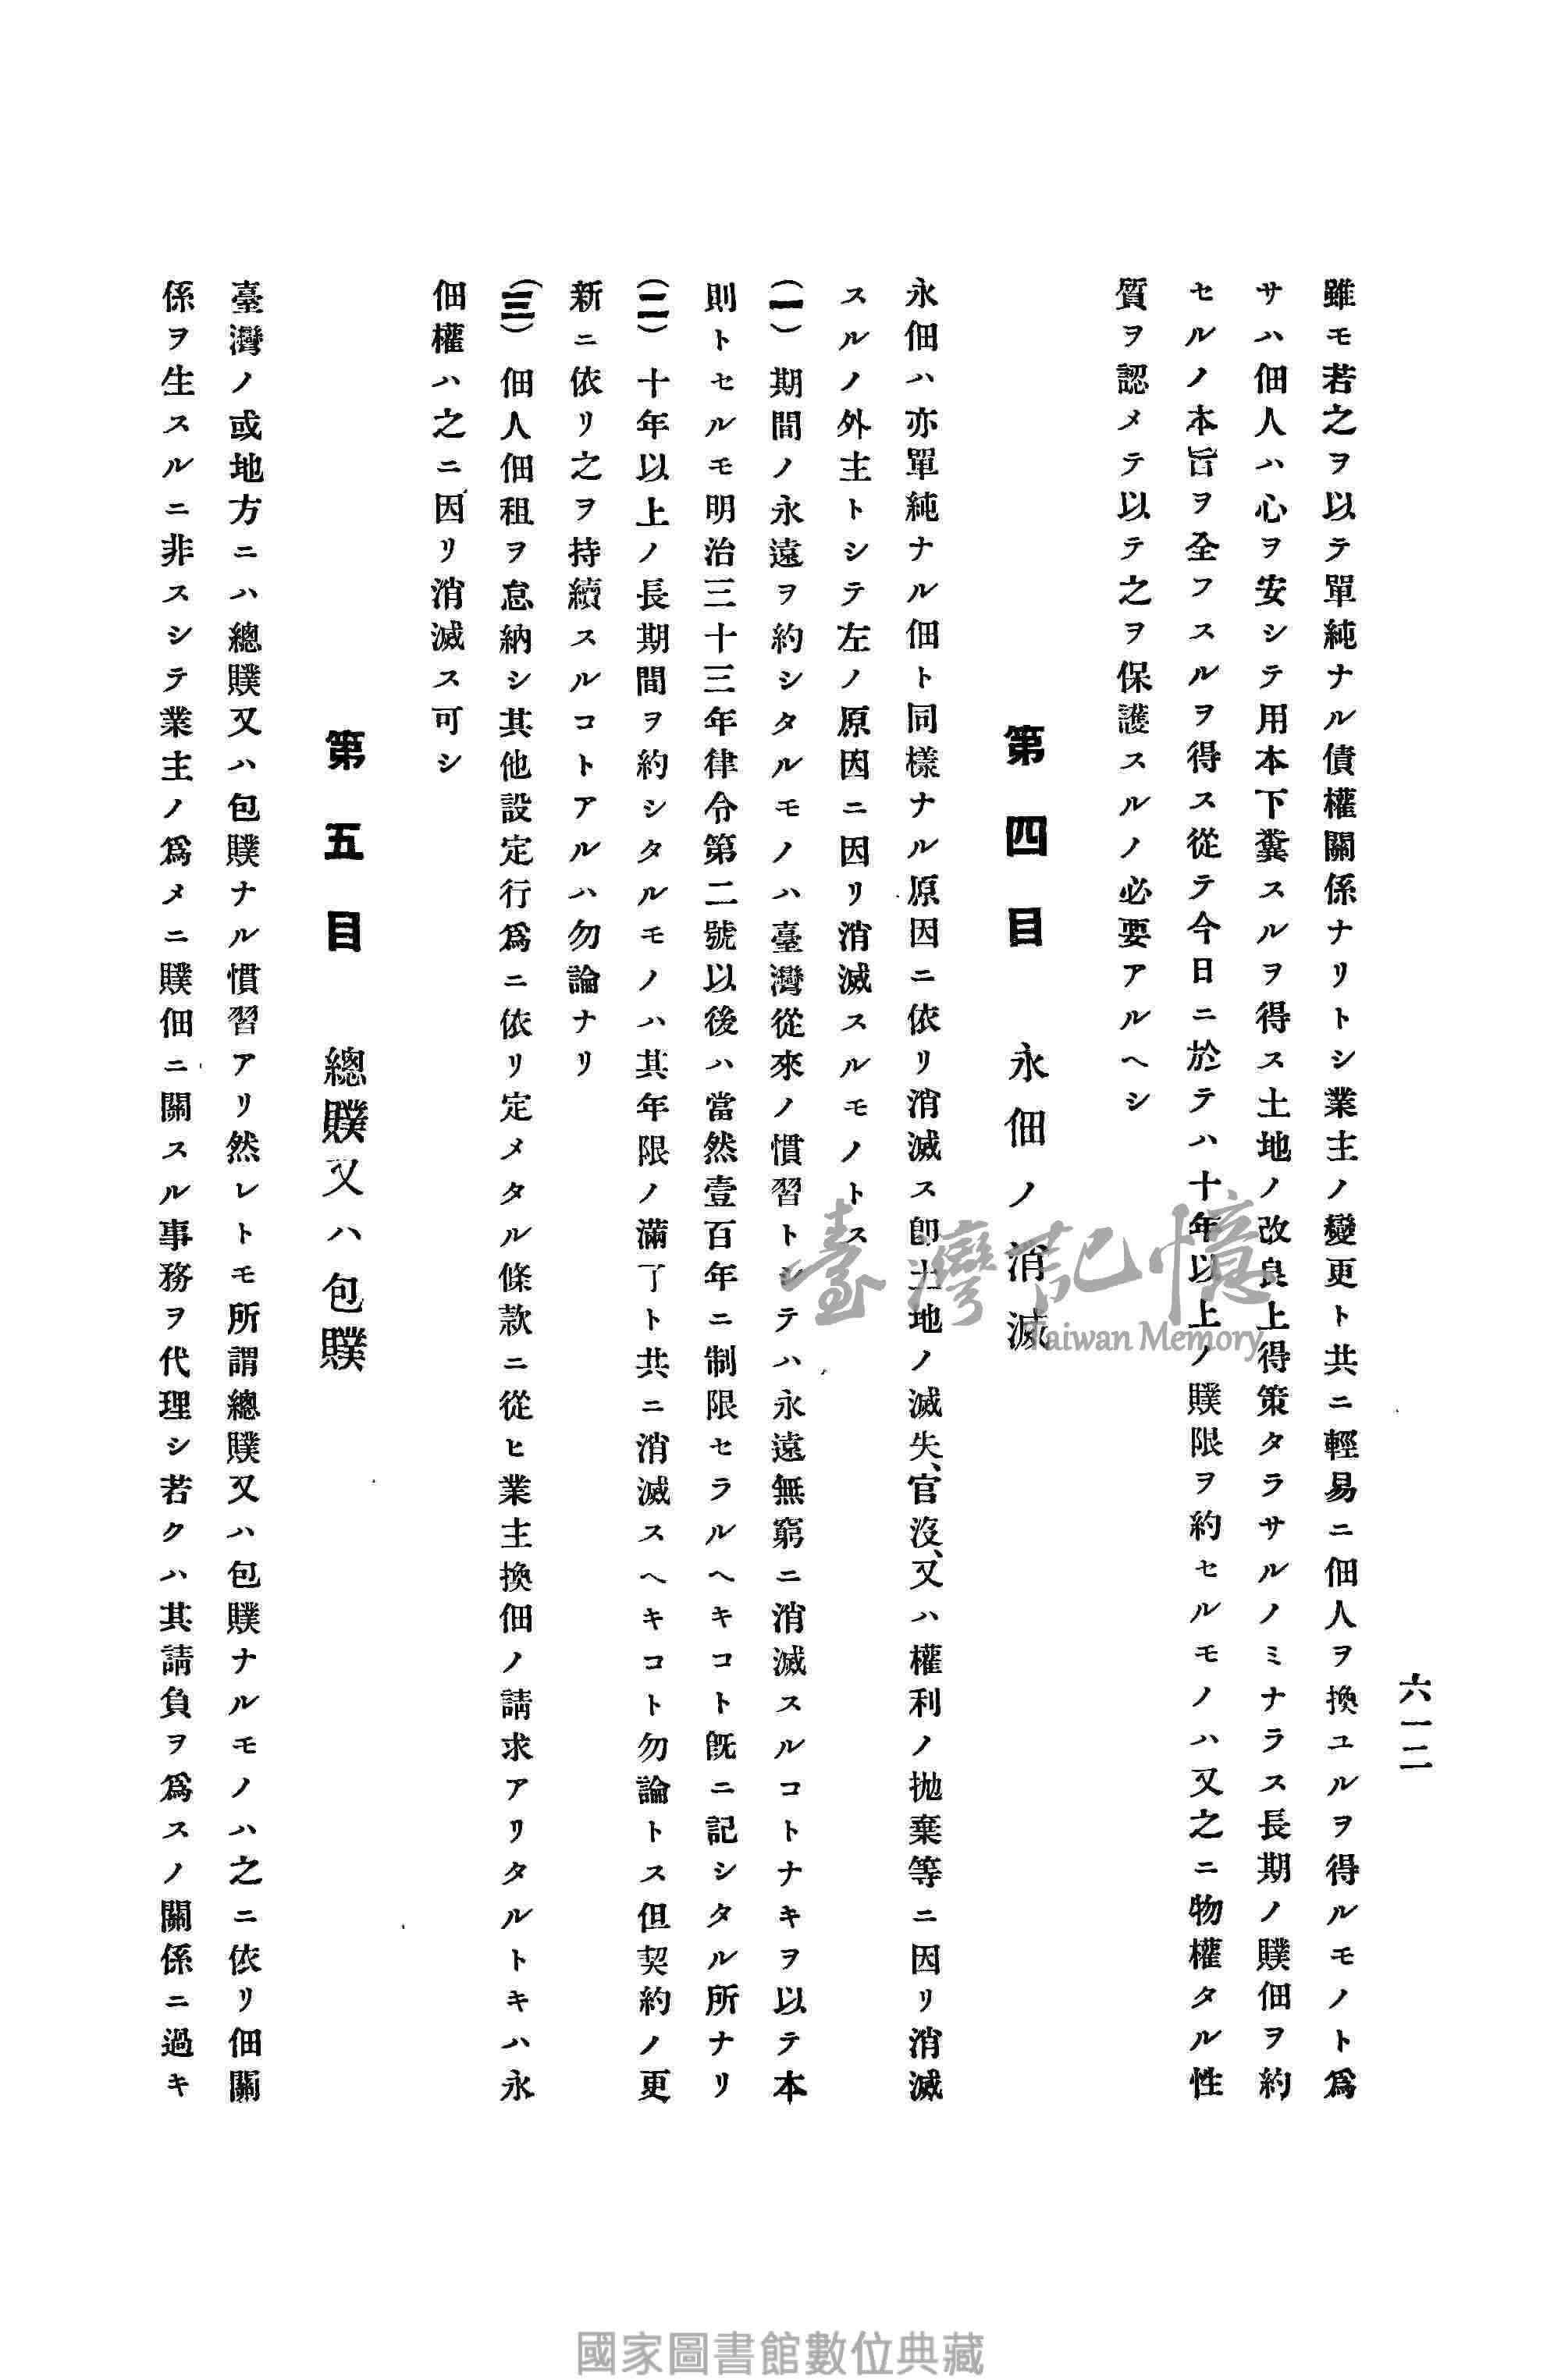 六一二
雖モ若之ヲ以テ單純ナル債權關係ナリトシ業主ノ變更ト共ニ輕易ニ佃人ヲ換ユルヲ得ルモノト爲
サハ佃人ハ心ヲ安シテ用本下糞スルヲ得ス土地ノ改良上得策タラサルノミナラス長期ノ贌佃ヲ約
セルノ本旨ヲ全フスルヲ得ス從テ今日ニ於テハ十年以上ノ贌限ヲ約セルモノハ又之ニ物權タル性
質ヲ認メテ以テ之ヲ保護スルノ必要アルヘシ
第四目 永佃ノ消滅
永佃ハ亦單純ナル佃ト同樣ナル原因ニ依リ消滅ス卽土地ノ滅失、官沒、又ハ權利ノ抛棄等ニ因リ消滅
スルノ外主トシテ左ノ原因ニ因リ消滅スルモノトス
(一) 期間ノ永遠ヲ約シタルモノハ臺灣從來ノ慣習トシテハ永遠無窮ニ消滅スルコトナキヲ以テ本
則トセルモ明治三十三年律令第二號以後ハ當然壹百年ニ制限セラルヘキコト旣ニ記シタル所ナリ
(二) 十年以上ノ長期間ヲ約シタルモノハ其年限ノ滿了ト共ニ消滅スヘキコト勿論トス但契約ノ更
新ニ依リ之ヲ持續スルコトアルハ勿論ナリ
(三) 佃人佃租ヲ怠納シ其他設定行爲ニ依リ定メタル條款ニ從ヒ業主換佃ノ請求アリタルトキハ永
佃權ハ之ニ因リ消滅ス可シ
第五目 總贌又ハ包贌
臺灣ノ或地方ニハ總贌又ハ包贌ナル慣習アリ然レトモ所謂總贌又ハ包贌ナルモノハ之ニ依リ佃關
係ヲ生スルニ非スシテ業主ノ爲メニ贌佃ニ關スル事務ヲ代理シ若クハ其請負ヲ爲スノ關係ニ過キ
臺灣記憶
Taiwan Memory
國家圖書館數位典藏